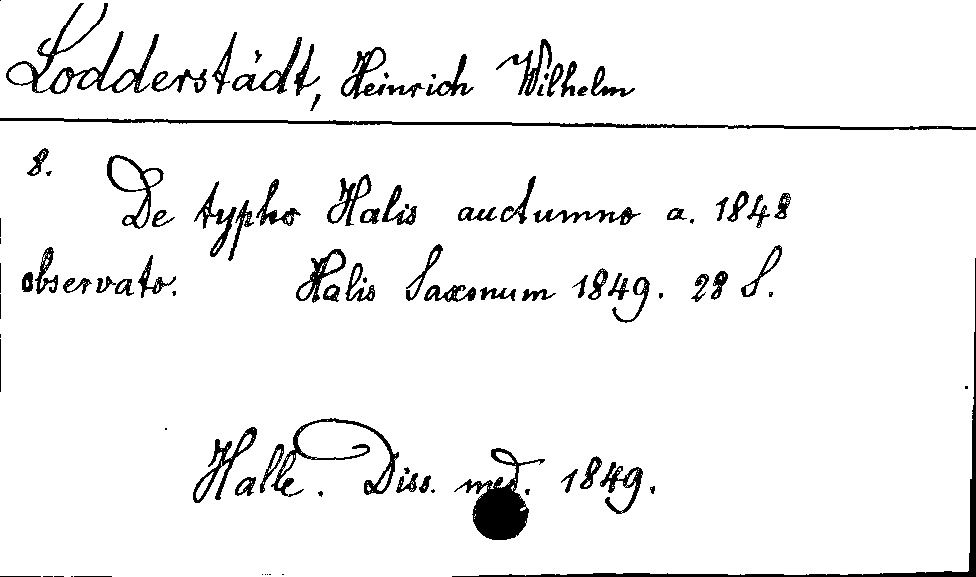 Lodderstädt, Heinrich Wilhelm
8. De typho Halis auctumno a. 1848
observato. Halis Saxonum 1849. 28 S.
Halle. Diss. med. 1849.